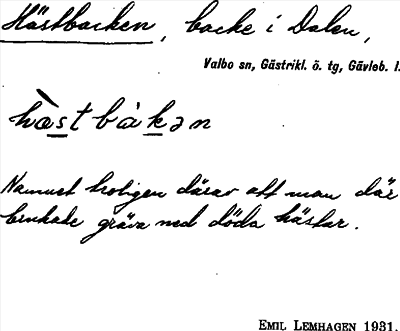 Hästbacken, backe i Dalen,
Valbo sn, Gästrikl. ö. tg, Gävleb. l.
hàstbàkən
Namnet troligen därav att man där
brukade gräva ned döda hästar.
EMIL LEMHAGEN 1931.